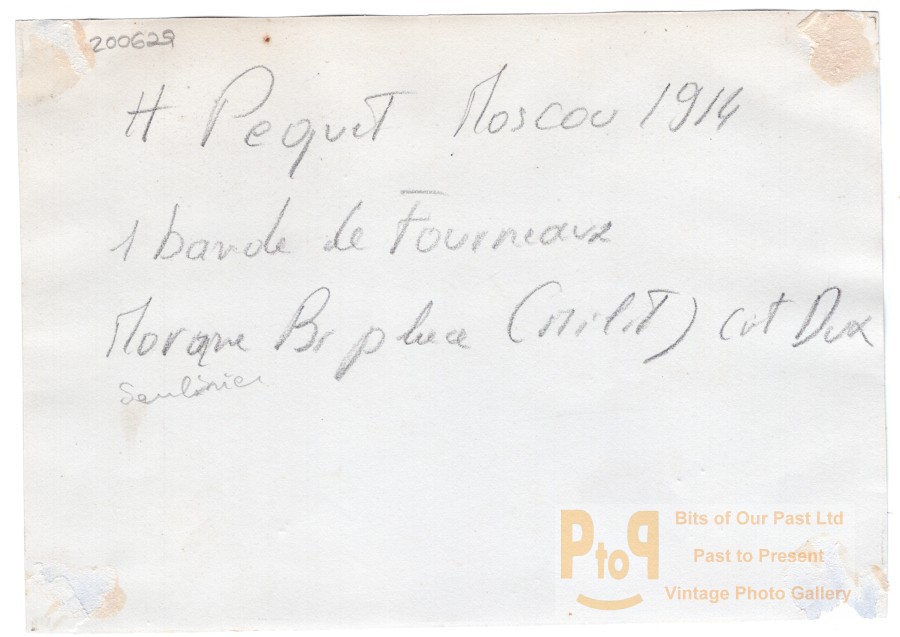 200629
H Pequet Moscou 1914
1 bande de Fourneaux
Morane Bi place (Milit) Cvt Dux
Saulinier
PtoP
Bits of Our Past Ltd
Past to Present
Vintage Photo Gallery